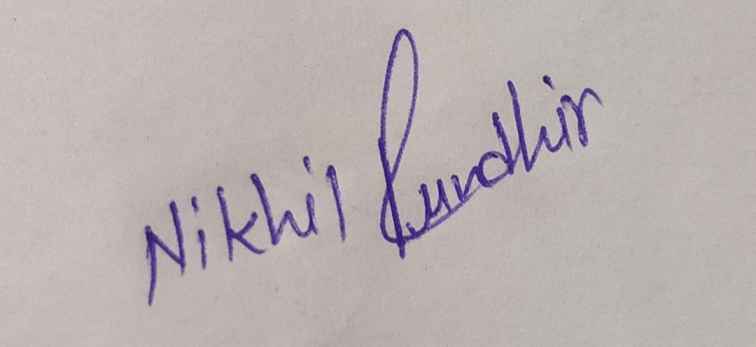 Nikhil Pundhir